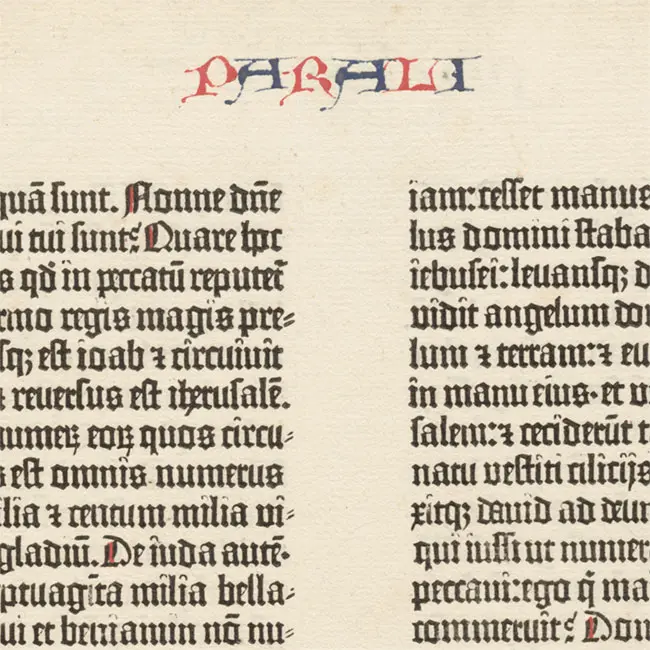 PARALI
quā sunt. Nonne dñe
ui tui sunt? Quare hoc
s qd̄ in peccatū reputet̄
rmo regis magis pre⸗
sq; est ioab ⁊ circuiuit
reuersus est iherusalē.
numerꝝ eoꝝ quos circu⸗
s est omnis numerus
lia ⁊ centum milia vi⸗
gladiū. De iuda autē·
ptuagīta milia bella⸗
ui et beniamin nō nu⸗
iam: cesset manus
lus domini staba
iebusei: leuansq; d
vidit angelum dom
lum ⁊ terram: ⁊ eu
in manu eius· et v
salem: ⁊ ceciderūt t
natu vestiti cilicijs
xitq; dauid ad deum
qui iussi ut numer
peccaui: ego q̄ ma
commeruit? Dom